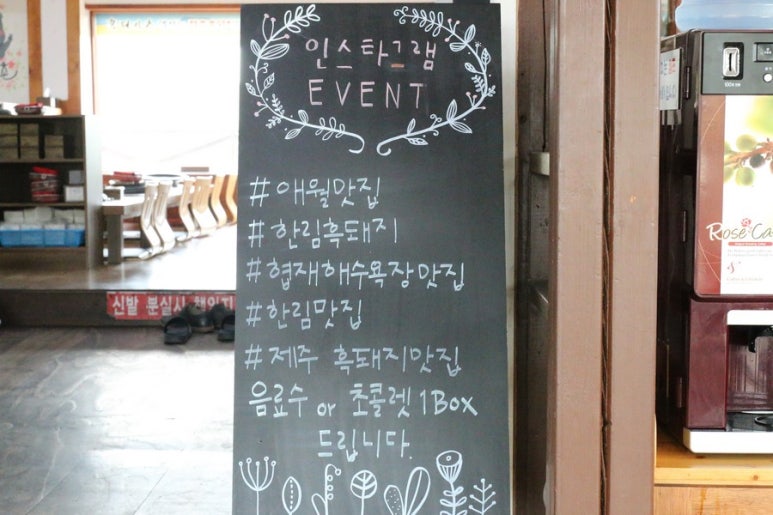 인스타그램
EVENT
#애월맛집
#한림흑돼지
#협재해수욕장맛집
#한림맛집
#제주 흑돼지맛집
음료수 or 초콜렛 1Box
드립니다.
신발 분실시 책임지
Rose Ca